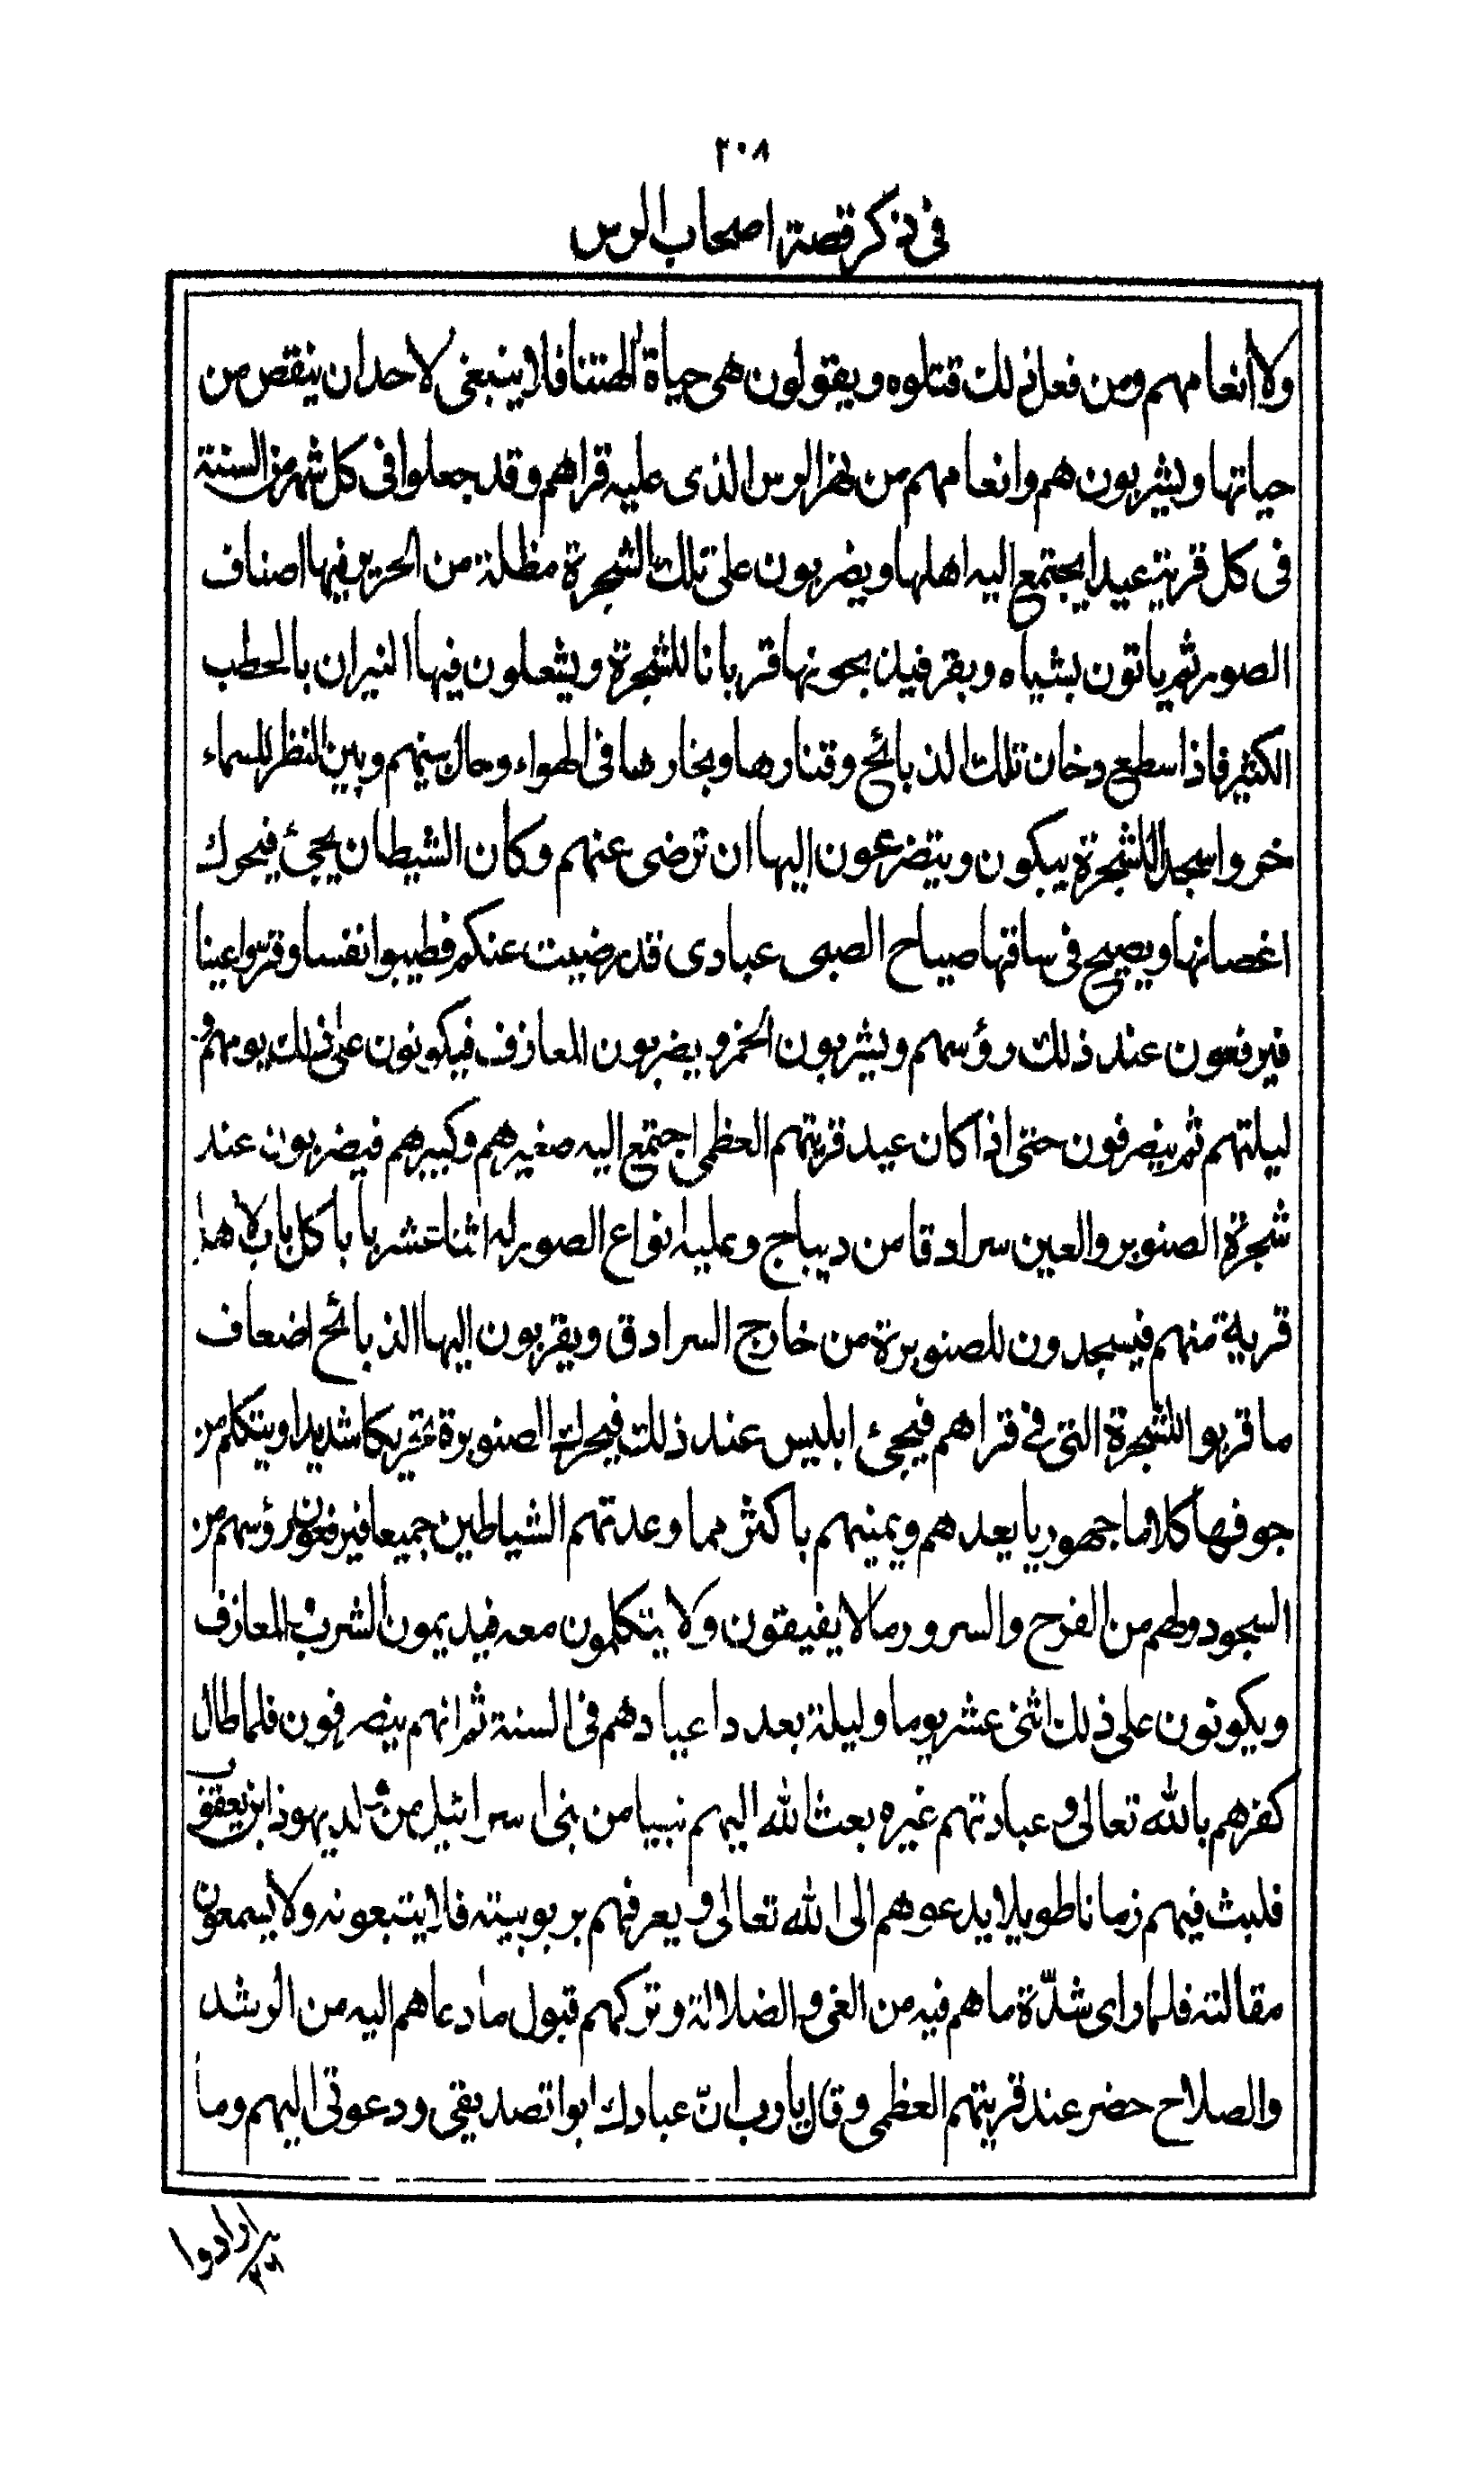 ٢٠٨
فى ذكر قصة اصحاب الرس
ولا انعامهم ومن فعل ذلك قتلوه ويقولون هى حياة الهتنا فلا ينبغى لاحد ان ينقص من
حياتها ويشربون هم وانعامهم من نهر الرس الذى عليه قراهم وقد جعلوا فى كل شهر من السنة
فى كل قرية عيدا يجتمع اليه اهلها ويضربون على تلك الشجرة مظلة من الحرير فيها اصناف
الصور ثم ياتون بشياه وبقر فيذبحونها قربانا للشجرة ويشعلون فيها النيران بالحطب
الكثير فاذا سطع دخان تلك الذبائح وقتارها وبخارها فى الهواء وحال بينهم وبين النظر للسماء
خروا سجدا للشجرة يبكون ويتضرعون اليها ان ترضى عنهم وكان الشيطان يجئ فيحرك
اغصانها ويصيح فى ساقها صياح الصبى عبادى قد رضيت عنكم فطيبوا نفسا وقرّوا عينا
فيرفعون عند ذلك رؤسهم ويشربون الخمر ويضربون المعازف فيكونون على ذلك يومهم و
ليلتهم ثم ينصرفون حتى اذا كان عيد قريتهم العظمى اجتمع اليه صغيرهم وكبيرهم فيضربون عند
شجرة الصنوبر والعين سرادقا من ديباج وعليه انواع الصور له اثنا عشر بابا كل باب لاهل
قرية منهم فيسجدون للصنوبرة من خارج السرادق ويقربون اليها الذبائح اضعاف
ما قربوا للشجرة التى فى قراهم فيجئ ابليس عند ذلك فيحرك الصنوبرة تحريكا شديدا ويتكلم من
جوفها كلاما جهوريا يعدهم ويمنيهم باكثر مما وعدتهم الشياطين جميعا فيرفعون رؤسهم من
السجود ولهم من الفرح والسرور ما لا يفيقون ولا يتكلمون معه فيديمون الشرب والمعازف
ويكونون على ذلك اثنى عشر يوما وليلة بعدد اعيادهم فى السنة ثم انهم ينصرفون فلما طال
كفرهم بالله تعالى و عبادتهم غيره بعث الله اليهم نبيا من بنى اسرائيل من ولد يهوذا بن يعقوب
فلبث فيهم زمانا طويلا يدعوهم الى الله تعالى و يعرفهم بربوبيته فلا يتبعونه ولا يسمعون
مقالته فلما راى شدّة ما هم فيه من الغى والضلالة وتركهم قبول ما دعاهم اليه من الرشد
والصلاح حضر عند قريتهم العظمى وقال يا رب انّ عبادك ابوا تصديقى ودعوتى اليهم وما
ارادوا